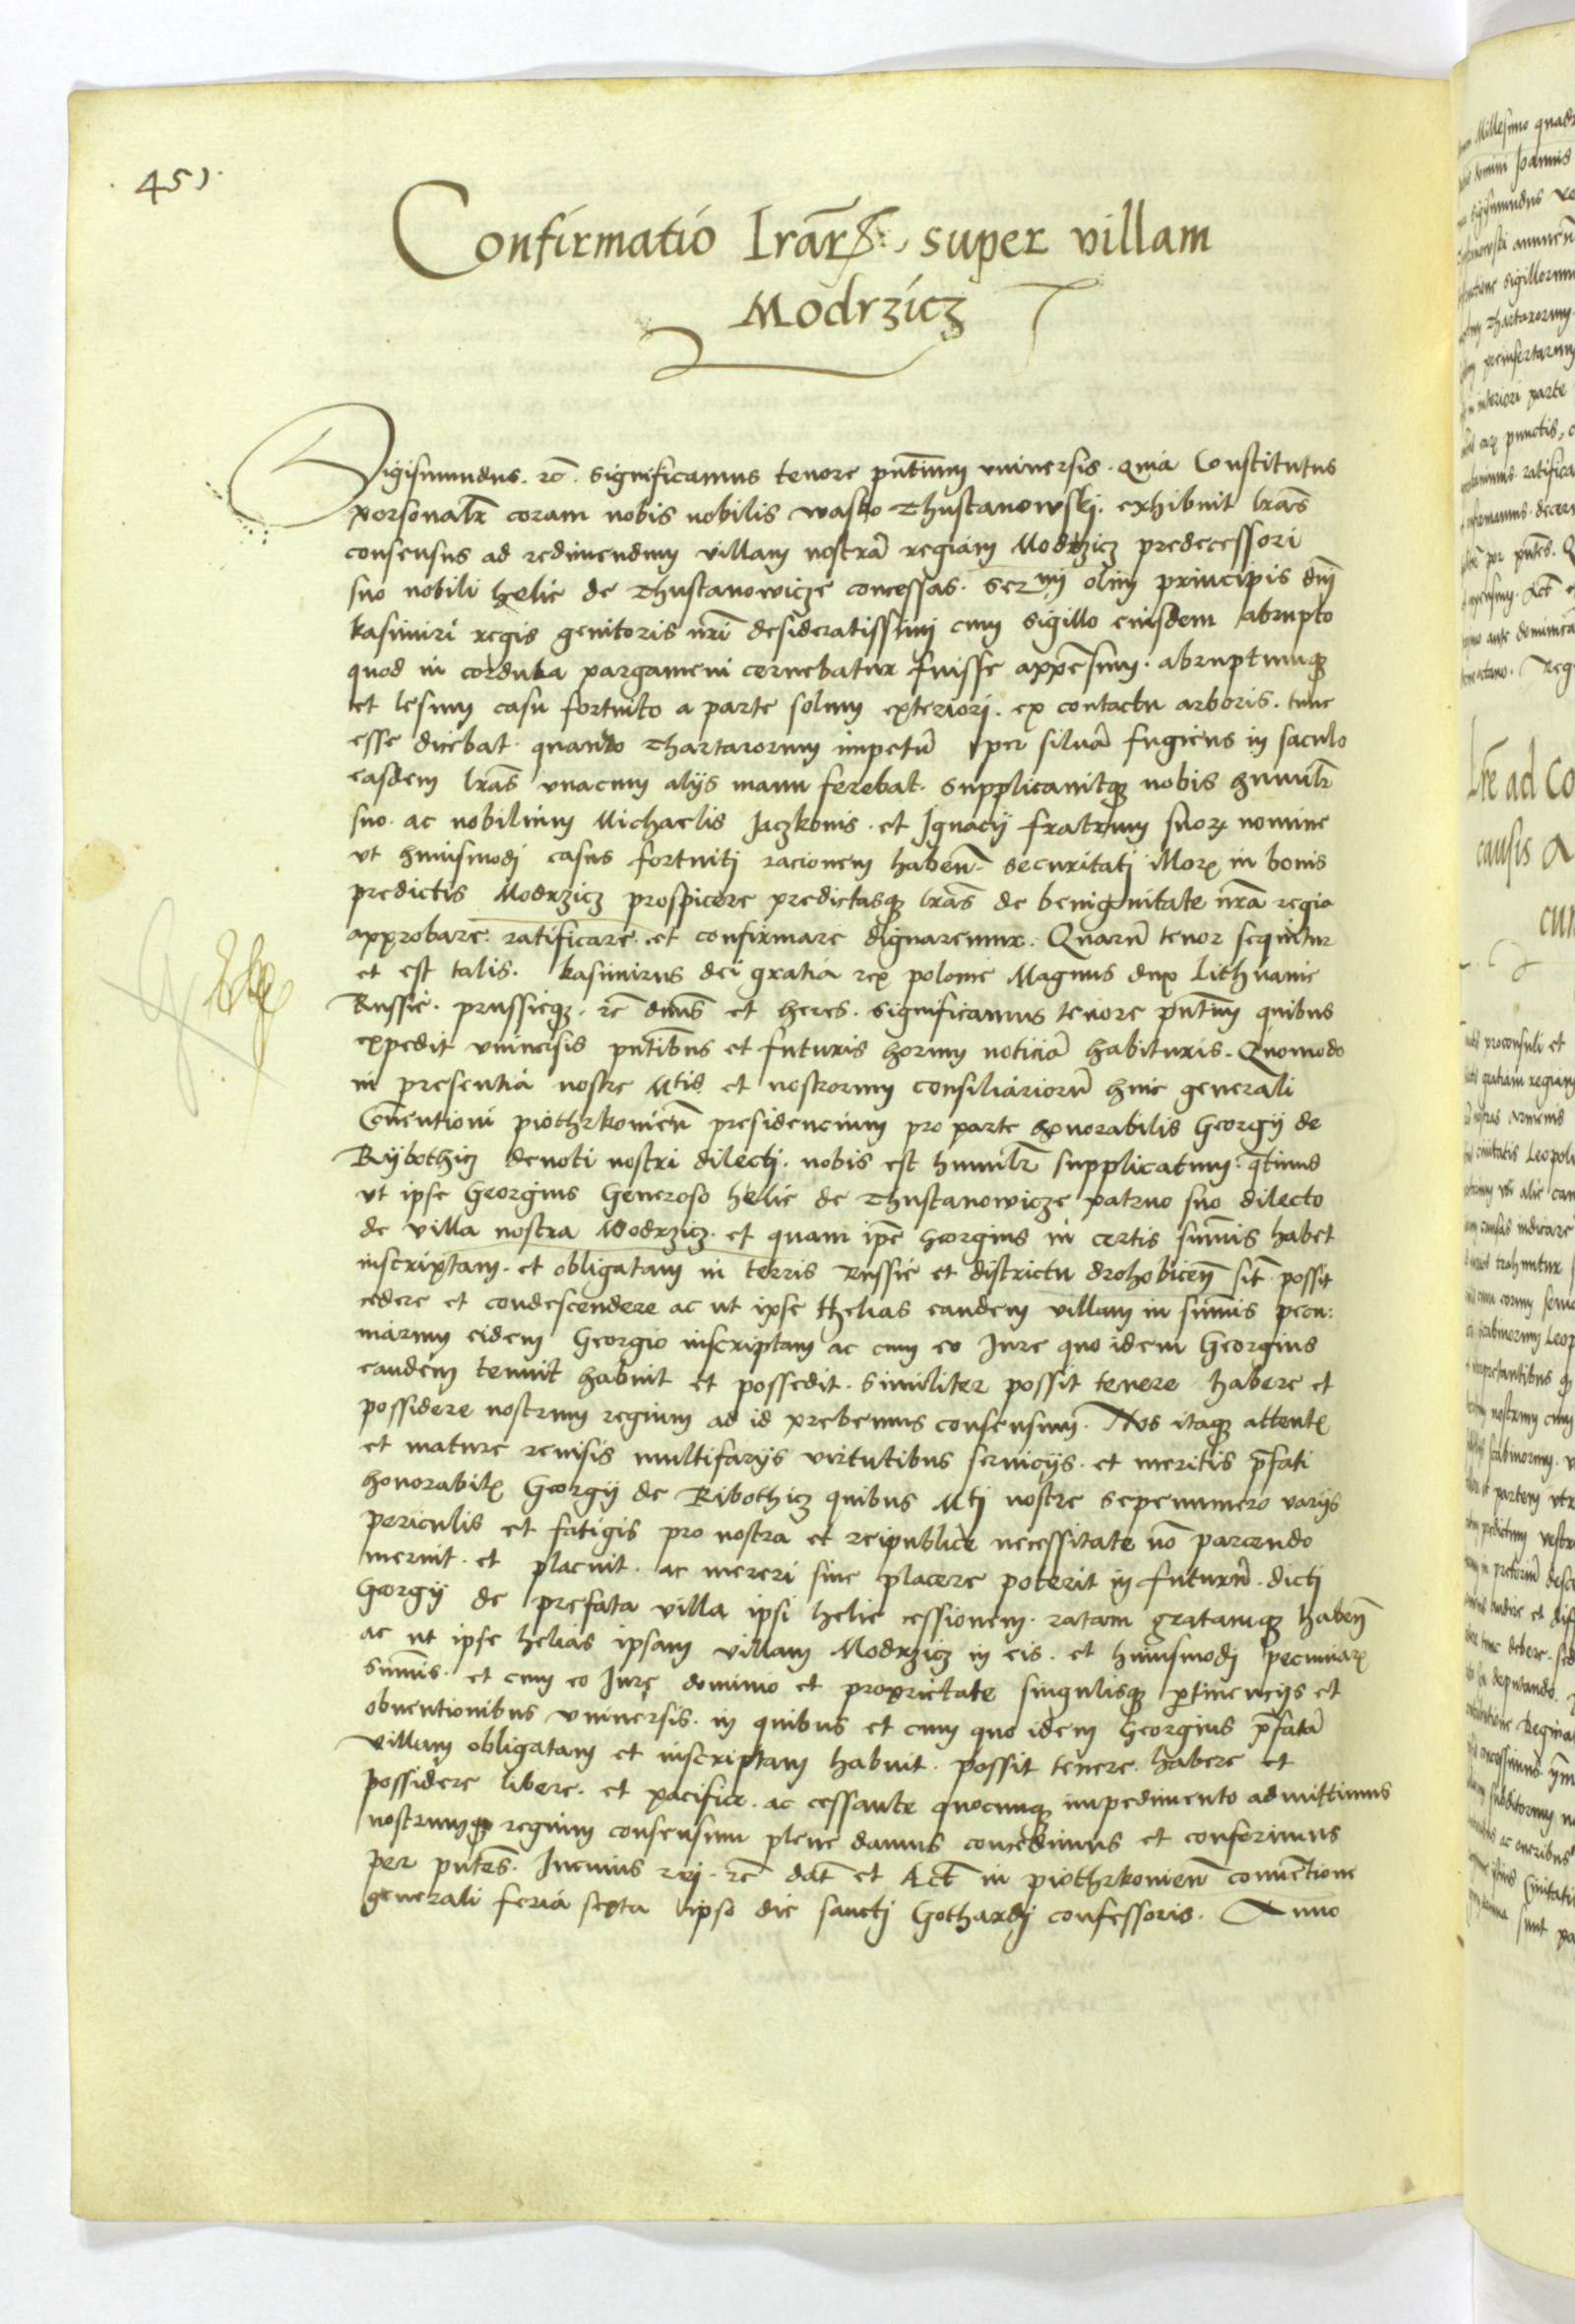 451
Confirmatio lrãrꝝ super villam
Modrzicz
Sigismundus. rc̃. significamus tenore pñtium vniversis. quia Constitutus
personalr̃ coram nobis nobilis wasko Thustanowskj. exhibuit lrãs
consensus ad redimendum villam nostrã regiam Modrzicz predecessori
suo nobili helie de Thustanowicze concessas. Sermi olim principis dñi
kasimiri regis genitoris nr̃i desideratissimi cum sigillo eiusdem abrupto
quod in cordula pargameni cernebatur fuisse appẽsum. abruptumqꝫ
et lesum casu fortuito a parte solum exteriorj. ex contactu arboris. tunc
esse dicebat. quando Thartarorum impetũ per siluã fugiens in saculo
easdem lrãs vnacum alijs manu ferebat. supplicauitqꝫ nobis humilr̃
suo. ac nobilium Michaelis Jaczkonis. et Ignacij fratrum suoꝝ nomine
vt huiusmodj casus fortuitj racionem habeñ. securitatj illoꝝ in bonis
predictis Modrzicz prospicere predictasqꝫ lrãs de benignitate nr̃a regia
approbare. ratificare. et confirmare dignaremur. Quarũ tenor sequitur
et est talis. kasimirus dei gratia rex polonie Magnus dux Lithuanie
Russie. prussieqꝫ. rc̃ dñus et heres. significamus tenore pñtium quibus
expedit vniuersis pñtibus et futuris horum noticiã habituris. Quomodo
in presentia nostre Mtis et nostrorum consiliariorũ huic generali
Conuentioni piothrkouieñ presidencium pro parte honorabilis Georgij de
Rybothicz deuoti nostri dilectj. nobis est humilr̃ supplicatum. q̃tinus
vt ipse Georgius Generoso helie de Thustanowicze patruo suo dilecto
de villa nostra Modrzicz. et quam ip̃e Georgius in certis summis habet
inscriptam. et obligatam in terris Russie et districtu drohobiceñ sit̃. possit
cedere et condescendere ac ut ipse Helias eandem villam in sum̃is pecu:
niarum eidem Georgio inscriptam ac cum eo Jure quo idem Georgius
eandem tenuit habuit et possedit. similiter possit tenere habere et
possidere nostrum regium ad id prebemus consensum. Nos itaqꝫ attentꝭ
et mature reuisis multifarijs virtutibus seruicijs. et meritis p̃fati
honorabilꝭ Georgij de Ribothicz quibus Mtj nostre sepenumero varijs
periculis et fatigis pro nostra et reipublice necessitate nõ parcendo
meruit. et placuit. ac mereri siue placere poterit in futurũ. dictj
Georgij de prefata villa ipsi helie cessionem. ratam gratamqꝫ habeñ
ac ut ipse helias ipsam villam Modrzicz in eis. et huiusmodj pecuniaꝝ
sum̃is. et cum eo Jure dominio et proprietate singulisqꝫ ꝑtinencijs et
obuentionibus vniuersis. in quibus et cum quo idem Georgius p̃fatã
villam obligatam et inscriptam habuit. possit tenere. habere et
possidere libere. et pacifice. ac cessante quocunqꝫ impedimento admittimus
nostrumqꝫ regium consensum plene damus concedimus et conferimus
per pñtes. In cuius rej. rc̃ dat̃ et Act̃ in piothrkouieñ conuẽtione
generali feria sexta ipso die sanctj Gothardj confessoris. Anno